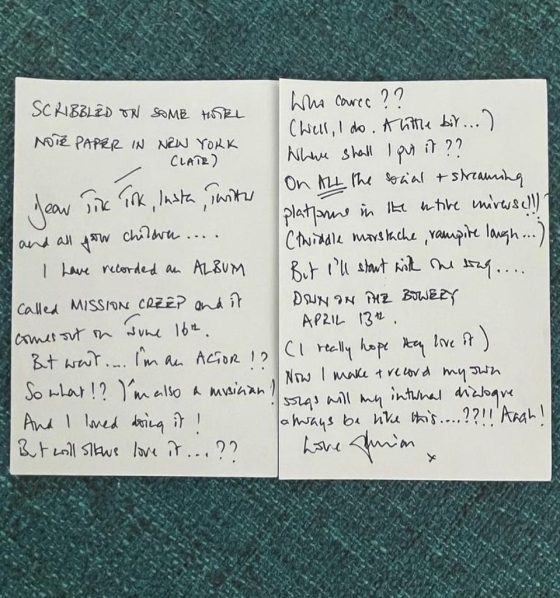 SCRIBBLED ON SOME HOTEL
NOTE PAPER IN NEW YORK
(LATE)
Dear Tik Tok, Insta, Twitter
and all your children ....
I have recorded an ALBUM
called MISSION CREEP and it
comes out on June 16th.
But wait .... I'm an ACTOR !?
So what !? I'm also a musician !
And I loved doing it !
But will others love it ... ??
Who cares ??
(Well, I do. A little bit ...)
Where shall I put it ??
On ALL the social + streaming
platforms in the entire universe!!!
(twiddle moustache, vampire laugh ...)
But I'll start with one song ....
DOWN ON THE BOWERY
APRIL 13th.
(I really hope they love it)
Now I make + record my own
songs will my internal dialogue
always be like this ....??!! Aagh!
Love
x